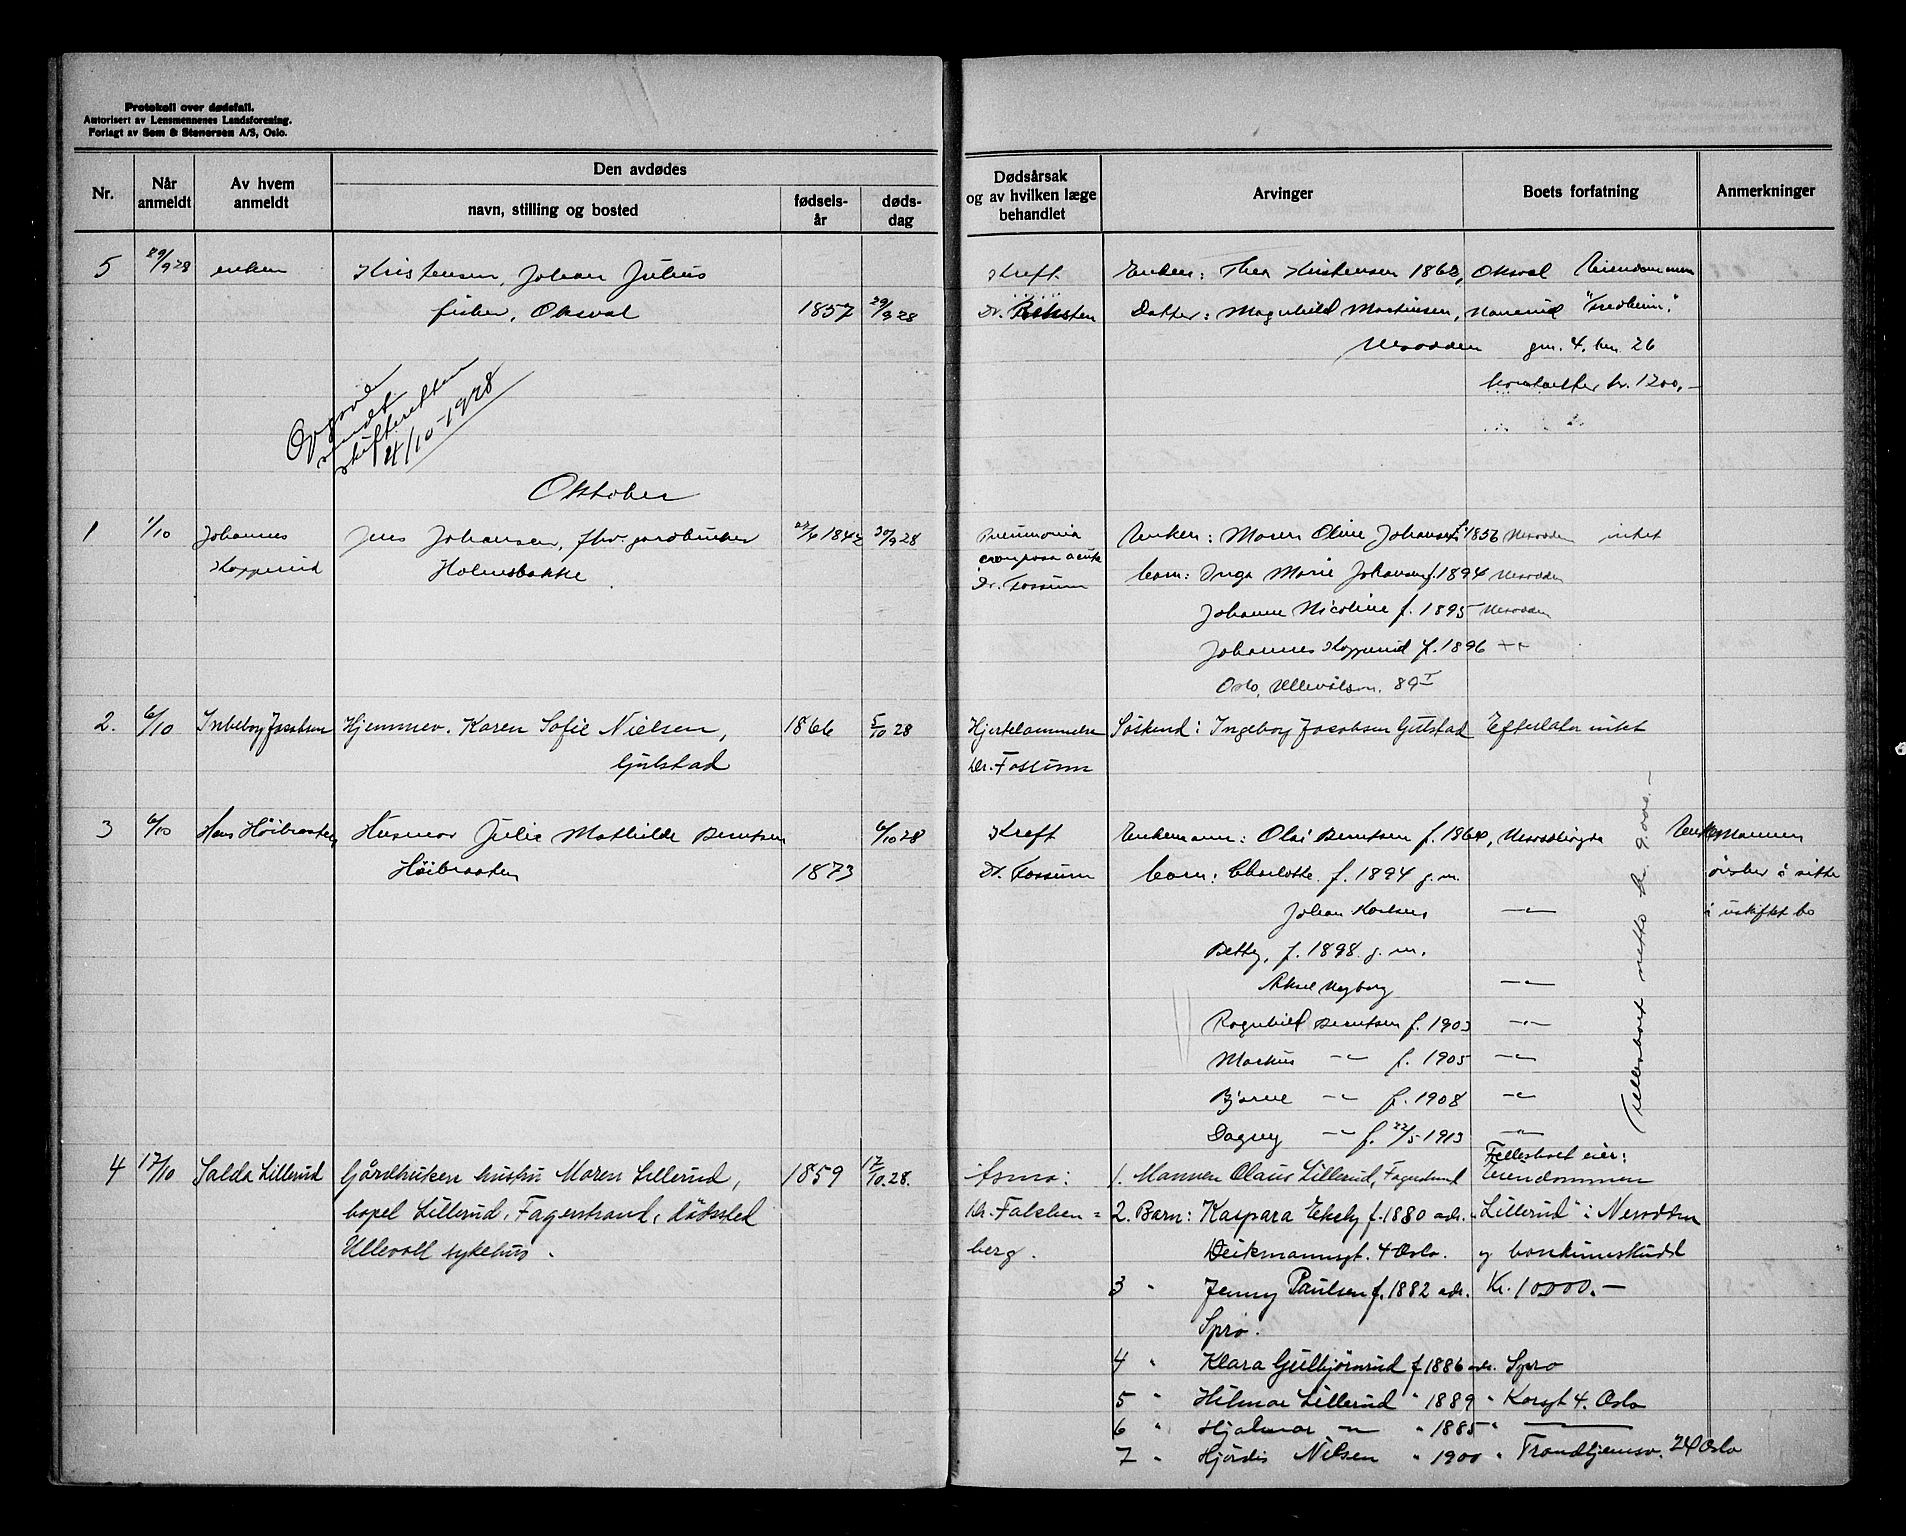 Protokoll over dødsfall.
Autorisert av Lensmennenes Landsforening.
Forlagt av Sem & Stenersen A/S, Oslo.
Nr.
Når anmeldt
Av hvem anmeldt
Den avdødes
navn, stilling og bosted
fødselsår
dødsdag
Dødsårsak og av hvilken læge behandlet
Arvinger
Boets forfatning
Anmerkninger
5 29/9 28 enken Kristensen, Johan Julius Kreft Enken: Thea Kristensen 1862, Oksval Eiendommen
fisker, Oksval 1857 29/9 28 Dr. Datter: Magnhild Martinsen, "Fredheim"
Nesodden gn. 4. bn. 26
kr. 1200,-
Opgave
sendt
skifteretten
4/10-1928
Oktober
1 1/10 Johannes Jens Johansen, fhv. gårdbruker 1842 30/9 28 Pneumonia Enken: Maren Oline Johansen f. 1856 Nesodden intet
Kopperud Holmsbakke crouposa acuta barn: Inga Marie Johansen f. 1894 Nesodden
Dr. Fossum
Johanne Nicoline f. 1895 Nesodden
Johannes Kopperud f. 1896 -"-
Oslo, Ullevålsvn. 89 I
2. 6/10 Ingeborg Jacobsen Hjemmev. Karen Sofie Nielsen, 1866 5/10 28 Hjertelammelse Søskend: Ingeborg Jacobsen Gulstad Efterlater intet
Gulstad Dr. Fossum
3 6/10 Hans Høibraaten Husmor Julie Mathilde Berntsen 6/10 28 Kreft Enkemann: Olai Berntsen f. 1864, Enkemannen
Høibraaten 1873 Dr. Fossum barn: Charlotte f. 1894 g.m. ønsker å sitte
Johan Karlsen -"- i uskiftet bo
Betty, f. 1898. g. m.
Aksel Nyborg -"-
Ragnhild Berntsen f. 1903 -"-
Markus -"- f. 1905 -"-
Bjarne -"- f. 1908 -"-
Dagny -"- f. 22/5 1913 -"-
Fellesboet netto kr. 9.000.-
Fellesboet eier:
4 17/10 Salda Lillerud Gårdbruker hustru Maren Lillerud, 1859 17/10. 28. Asma: 1. Mannen Olaus Lillerud, Fagerstrand Eiendommen
bopel Lillerud, Fagerstrand, dødssted Dr. Falchen= 2. Barn: Kaspara Ekeby f. 1880 adr. "Lillerud" i Nesodden
Ullevoll sykehus. berg. Deikmannsgt. 4 Oslo. og bankinnskudd
3 " Jenny Paulsen f. 1882 adr. Kr. 10.000.-
Spro.
4 " Klara Gulbjørnrud f 1886 adr. Spro
5 " Hilmar Lillerud " 1889 " Korsgt 4. Oslo
6 " Hjalmar -"- " 1885 "
7 " Hjørdis Nilsen " 1900 " Trondhjemsv. 24 Oslo